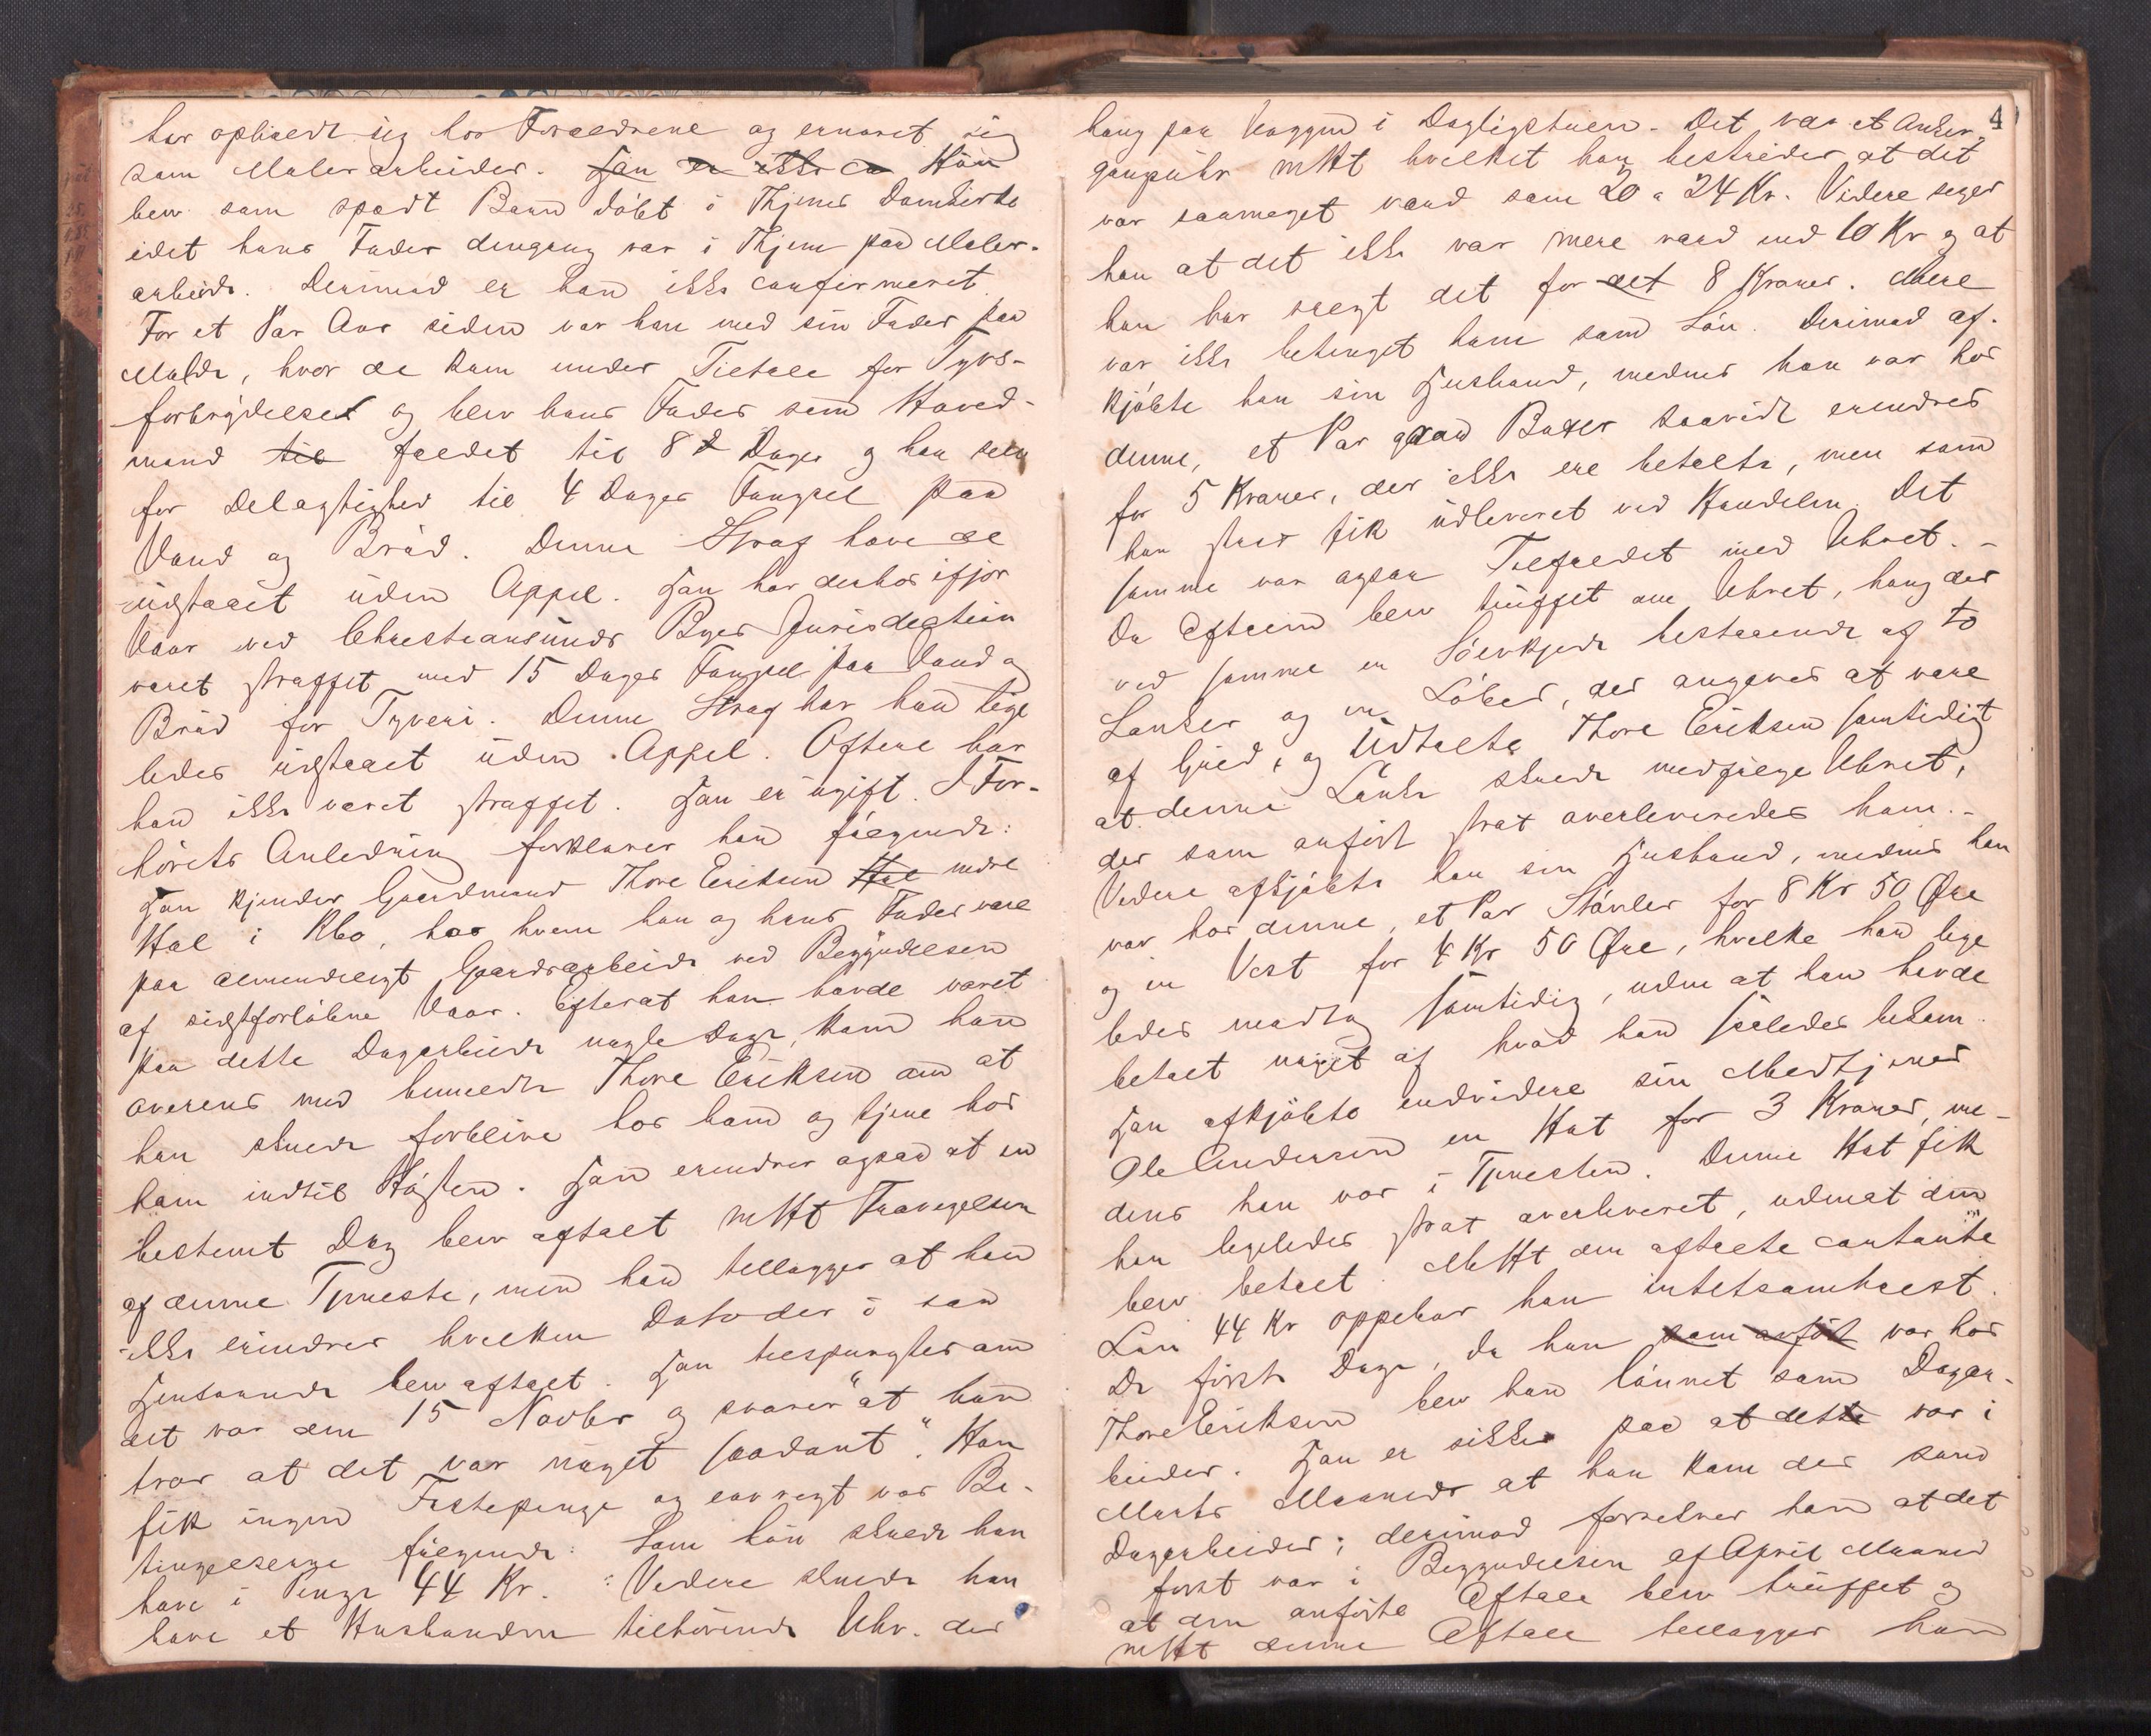 har opholdt sig hos Forældrene og ernæret sig
som Malerarbeider. Han er ikke en Han
blev som spædt Barn döbt i Thjems Domkirke
idet hans Fader dengang var i Thjem paa Maler-
arbeide. Derimod er han ikke confirmeret.
For et Par Aar siden var han med sin Fader paa
Molde, hvor de kom under Tiltale for Tyvs-
forbrydelse og blev hans Fader som Hoved-
mand til fældet til 8 D Dage og han selv
for Delagtighed til 4 Dages Fængsel paa
Vand og Bröd. Denne Straf have de
udstaaet uden Appel. Han har derhos ifjor
Vaar ved Christiansunds Byes Jurisdiction
været straffet med 15 Dages Fængsel paa Vand og
Bröd for Tyveri. Denne Straf har han lige
ledes udstaaet uden Appel. Oftere har
han ikke været straffet. Han er ugift. I For-
hörets Anledning forklarer han fölgende:
Han kjender Gaardmand Thore Eriksen Hol nedre
Hol i Kbo, hos hvem han og hans Fader vare
paa almindeligt Gaardsarbeide ved Begyndelsen
af sidstforlöbne Vaar. Efterat han havde været
paa dette Dagarbeide nogle Dage, kom han
overens med bemeldte Thore Eriksen om at
han skulde forblive hos ham og tjene hos
ham indtil Hösten. Han erindrer ogsaa at en
bestemt Dag blev aftalt mHt Fravigelsen
af denne Tjeneste, men han tillægger at han
ikke erindrer hvilken Dato der i saa
Henseende blev aftalt. Han tilspurgtes om
det var den 15 Novbr og svarer "at han
tror at det var noget saadant". Han
fik ingen Fæstepenge og eovrigt var Be-
tingelserne fölgende: Som Lön skulde han
have i Penge 44 Kr. : Videre skulde han
have et Husbonden tilhörende Uhr. der
4
hang paa Væggen i Dagligstuen. Det var et Anker-
gangsuhr mHt hvilket han bestrider at det
var saameget værd som 20 a 24 Kr. Videre siger
han at det ikke var mere værd end 10 Kr og at
han har solgt det for det 8 Kroner. Mere
var ikke betinget ham som Lön. Derimod af-
kjöbte han sin Husbond, medens han var hos
denne, et Par graa Buxer saavidt erindres
for 5 Kroner, der ikke ere betalte, men som
han strax fik udleveret ved Handelen. Det
samme var ogsaa Tilfældet med Uhret. -
Da Aftalen blev truffet om Uhret, hang der
ved samme en Sölvkjede bestaaende af to
Lænker og en Löber, der angaves at være
af Guld, og Udtalte Thore Eriksen samtidigt
at denne Lænke skulde medfölge Uhret,
der som anfört strax overleveredes ham. -
Videre afkjöbte han sin Husbond, medens han
var hos denne, et Par Stövler for 8 Kr 50 Øre
og en Vest for 4 Kr 50 Øre, hvilke han lige
ledes modtog samtidig, uden at han havde
betalt noget af hvad han saaledes bekom.
Han afkjöbte endvidere sin Medtjener
Ole Andersen en Hat for 3 Kroner, me-
dens han var i Tjenesten. Denne Hat fik
han ligeledes strax overleveret, udenat den
blev betalt. MHt den aftalte contante
Lön 44 Kr oppebar han intetsomhelst.
De förste Dage, da han som anfört var hos
Thore Eriksen blev han lönnet som Dagar-
beider. Han er sikker paa at dette var i
Marts Maaned at han kom der som
Dagarbeider; derimod forklarer han at det
först var i Begyndelsen af April Maaned
at den anförte Aftale blev truffet og
mHt denne Aftale tillægger han